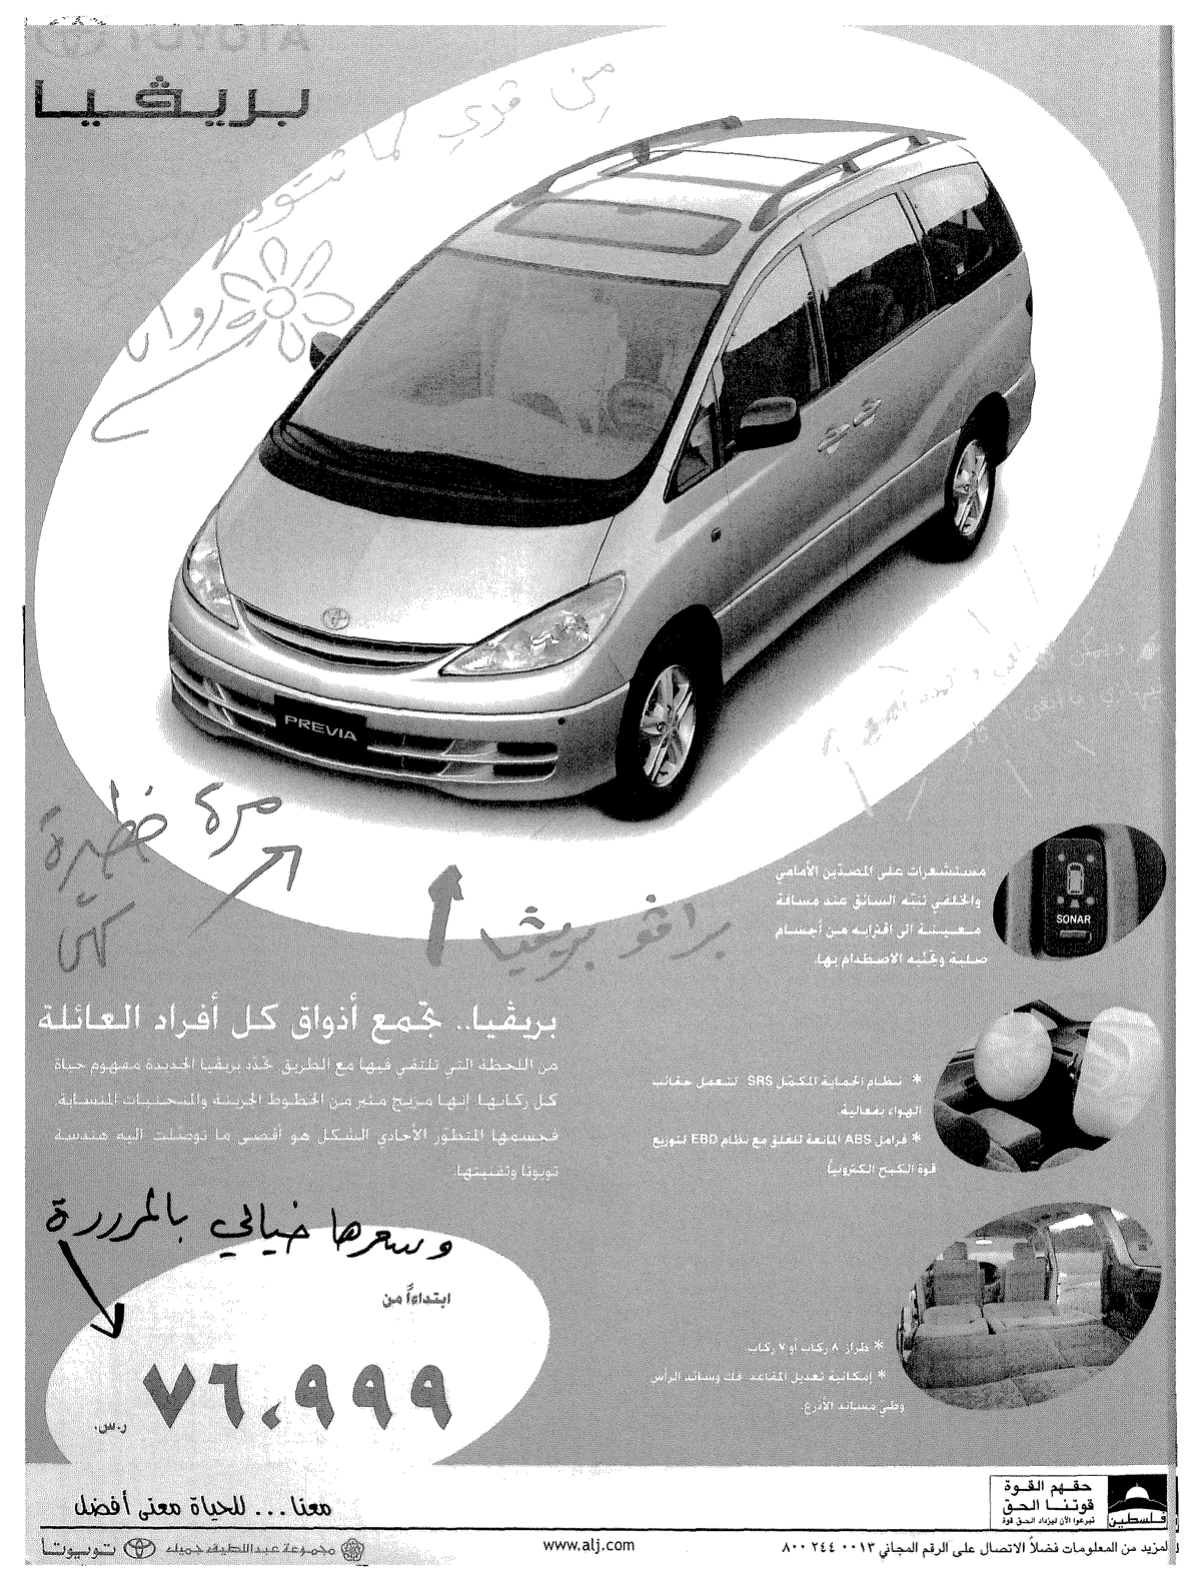 TOYOTA
بريڤيا
من قدري كما
PREVIA
مرة خطيرة
براڤو بريڤيا
مستشعرات على المصدّين الأمامي
والخلفي تنبّه السائق عند مسافة
معينة الى اقترابه من أجسام
صلبة وتجنّبه الاصطدام بها.
SONAR
بريڤيا.. تجمع أذواق كل أفراد العائلة
من اللحظة التي تلتقي فيها مع الطريق تحدّد بريڤيا الجديدة مفهوم حياة
كل ركابها. إنها مزيج مثير من الخطوط الجريئة والمنحنيات المنسابة.
فجسمها المتطوّر الأحادي الشكل هو أقصى ما توصّلت اليه هندسة
تويوتا وتقنيتها.
* نظام الحماية المكمّل SRS لتعمل حقائب
الهواء بفعالية.
* فرامل ABS المانعة للغلق مع نظام EBD لتوزيع
قوة الكبح الكترونياً
وسعرها خيالي بالمرررة
ابتداءاً من
٧٦،٩٩٩
ر.س.
* طراز ٨ ركاب أو ٧ ركاب.
* إمكانية تعديل المقاعد فك وسائد الرأس
وطيّ مساند الأذرع.
معنا... للحياة معنى أفضل
حقهم القوة
قوتنا الحق
تبرعوا الآن ليزداد الحق قوة
فلسطين
مجموعة عبداللطيف جميل
تويوتا
www.alj.com
لمزيد من المعلومات فضلاً الاتصال على الرقم المجاني ٨٠٠ ٢٤٤ ٠٠١٣